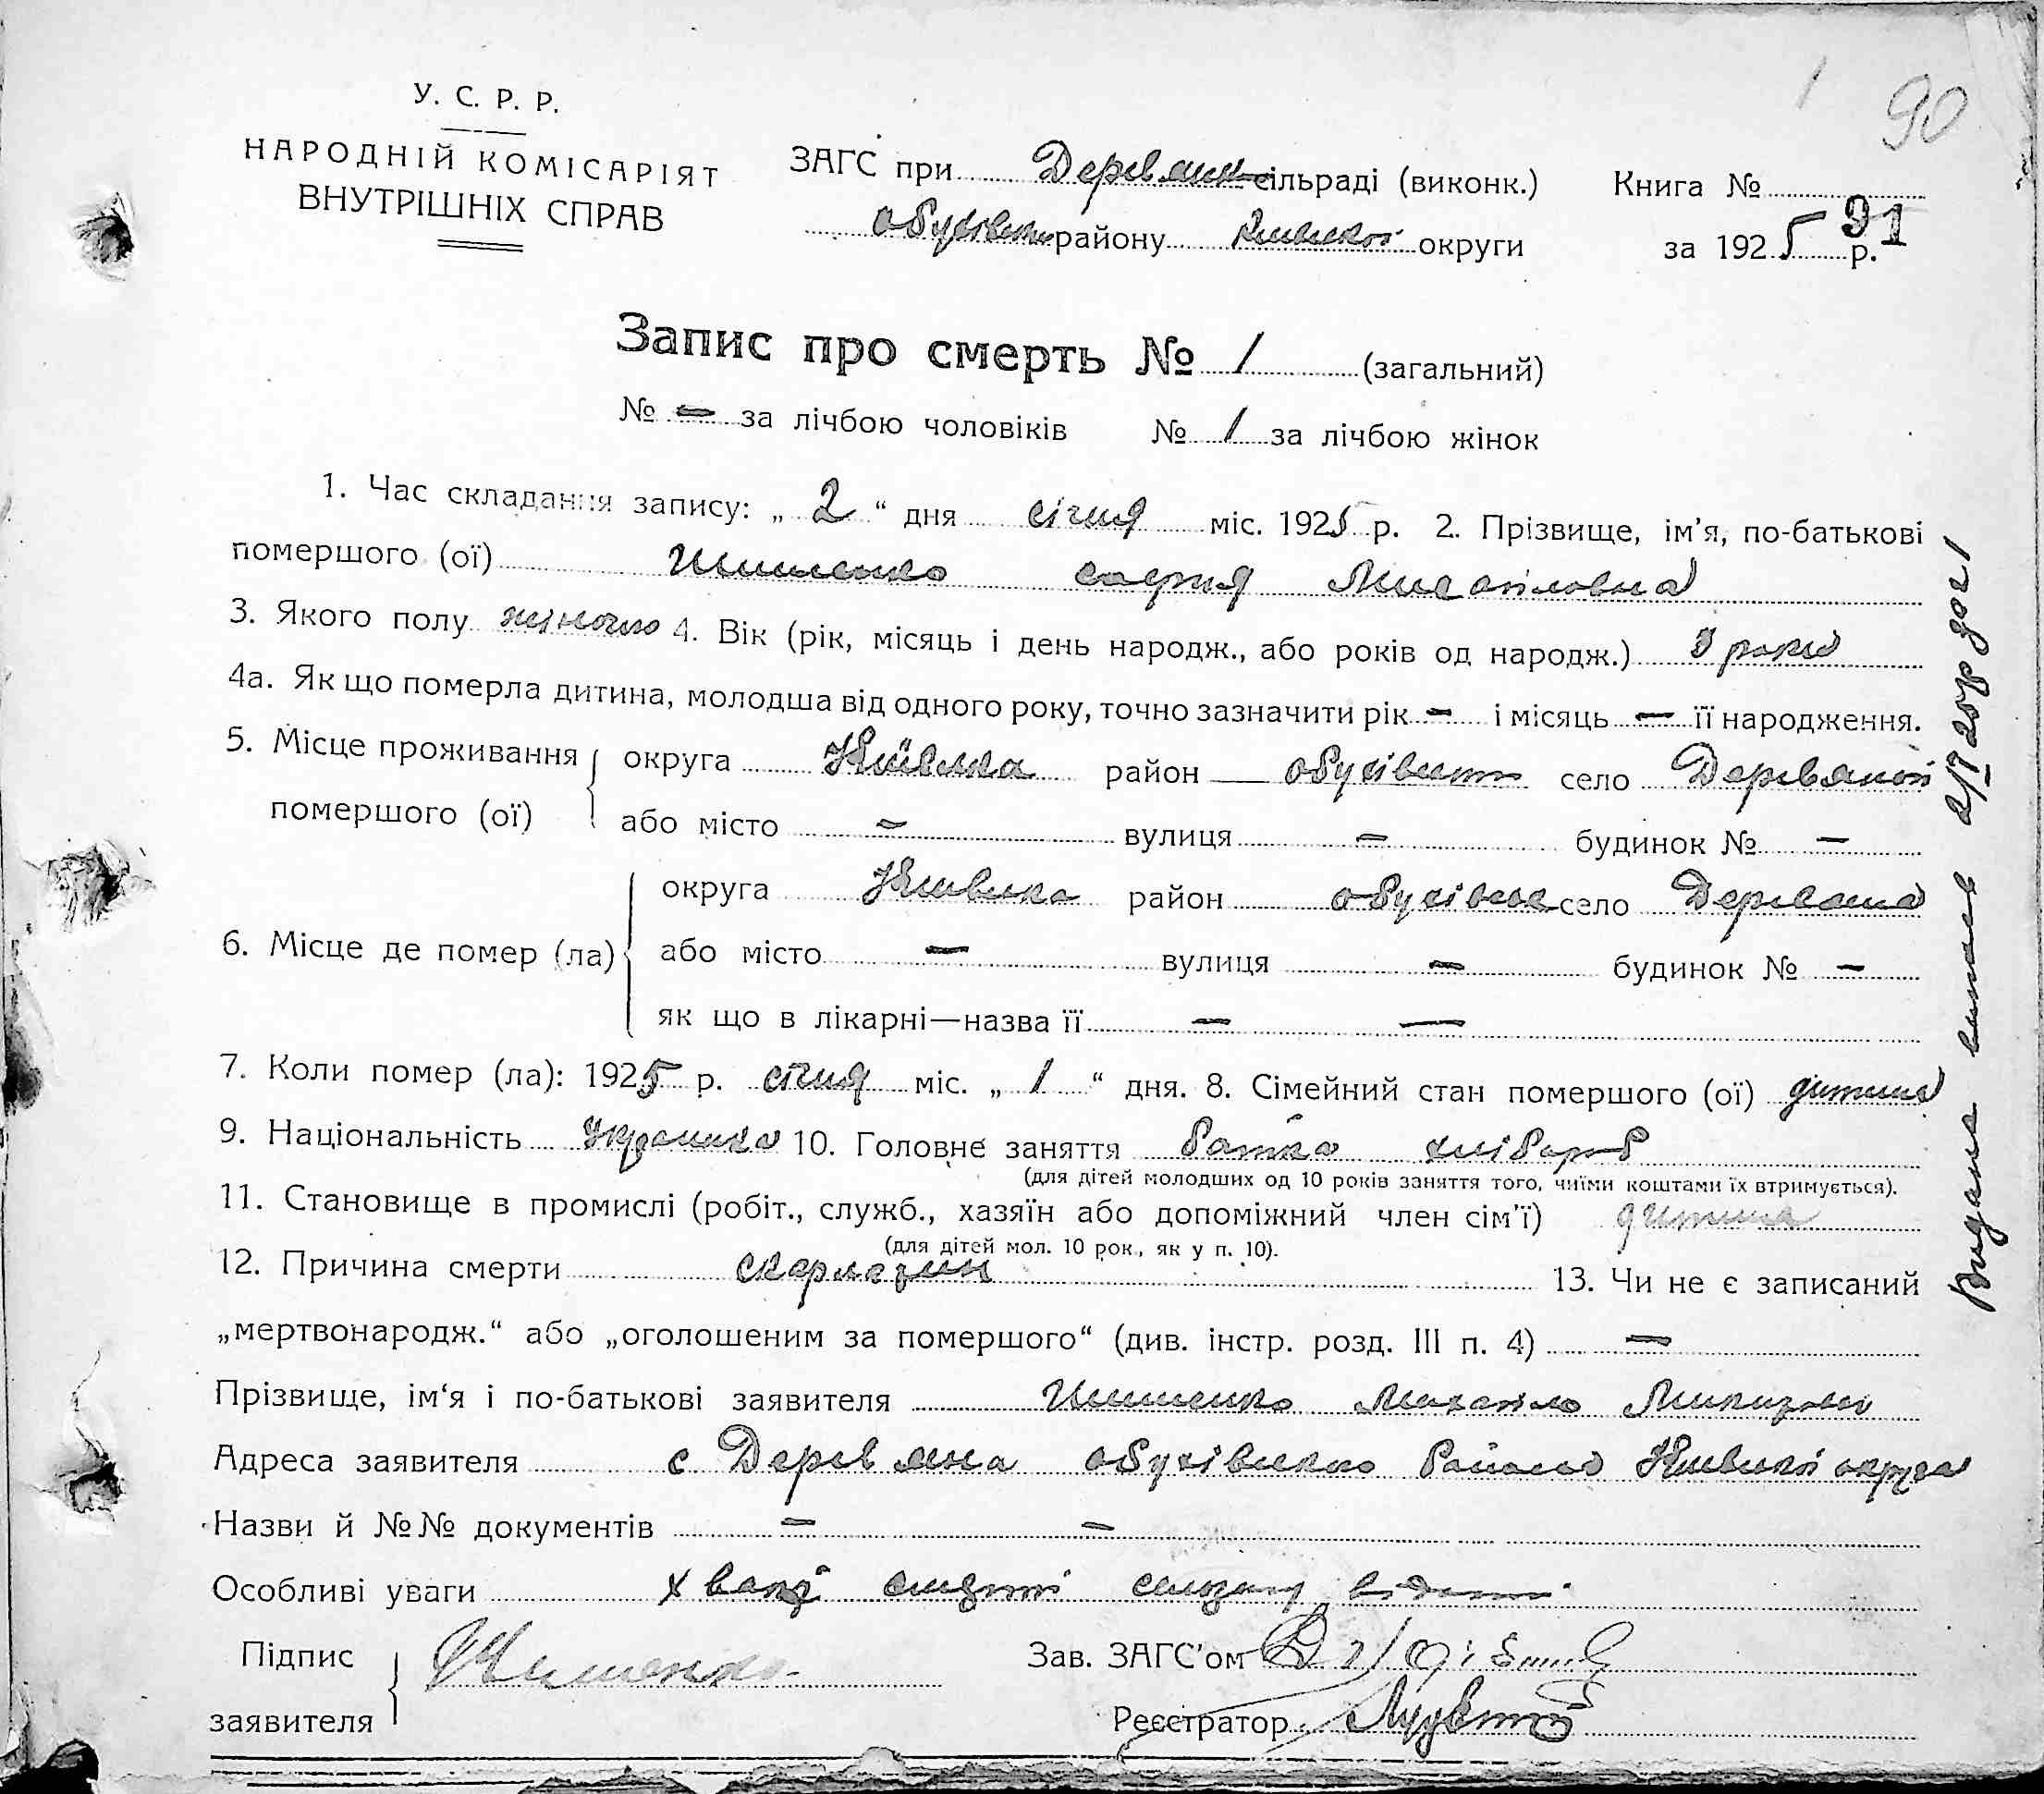 1 90
У. С. Р. Р.
НАРОДНІЙ КОМІСАРІЯТ
ВНУТРІШНІХ СПРАВ
ЗАГС при Деревянськ сільраді (виконк.)
Обухівськ району Київської округи
Книга №
91
за 1925 р.
Запис про смерть № 1 (загальний)
№ — за лічбою чоловіків № 1 за лічбою жінок
1. Час складання запису: „ 2 “ дня січня міс. 1925 р. 2. Прізвище, ім’я, по-батькові
помершого (ої) Шишенко Михайловна
3. Якого полу жіночого 4. Вік (рік, місяць і день народж., або років од народж.) 3 роки
4а. Як що померла дитина, молодша від одного року, точно зазначити рік — і місяць — її народження.
5. Місце проживання помершого (ої) округа Київська район обухівськ село Деревяної
або місто — вулиця — будинок № —
6. Місце де помер (ла) округа Київська район обухівськ село Деревяна
або місто — вулиця — будинок № —
як що в лікарні—назва її — —
7. Коли помер (ла): 1925 р. січня міс. „ 1 “ дня. 8. Сімейний стан помершого (ої) дитина
9. Національність Українка 10. Головне заняття батька хлібороб
(для дітей молодших од 10 років заняття того, чиїми коштами їх втримується).
11. Становище в промислі (робіт., служб., хазяїн або допоміжний член сім’ї) дитина
(для дітей мол. 10 рок., як у п. 10).
12. Причина смерти 13. Чи не є записаний
„мертвонародж.“ або „оголошеним за помершого“ (див. інстр. розд. III п. 4) —
Прізвище, ім‘я і по-батькові заявителя Шишенко Михайло
Адреса заявителя с Деревяна обухівського Району Київської округи
Назви й №№ документів — —
Особливі уваги
Підпис заявителя Шишенко
Зав. ЗАГС’ом
Реєстратор
Видана